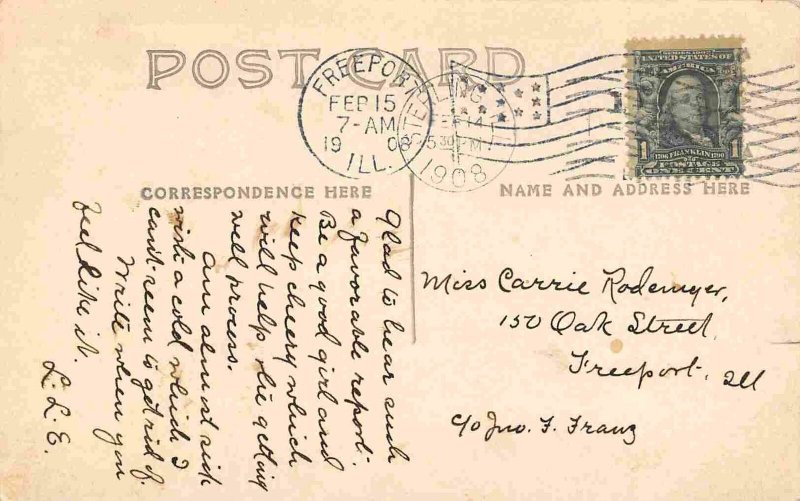 POST CARD
FREEPORT
FEB 15
7-AM
1908
ILL.
STERLING
FEB 14
530 PM
1908
SERIES 1902
UNITED STATES OF
AMERICA
1 1706 FRANKLIN 1790 1
POSTAGE
ONE CENT
CORRESPONDENCE HERE
NAME AND ADDRESS HERE
Glad to hear such
a favorable report.
Be a good girl and
keep cheery which
will help the getting
well process.
Am almost sick
with a cold which I
can't seem to get rid of.
Write when you
feel like it.
L. L. E.
Miss Carrie Rodemyer,
150 Oak Street,
Freeport, Ill
c/o Jno. F. Franz